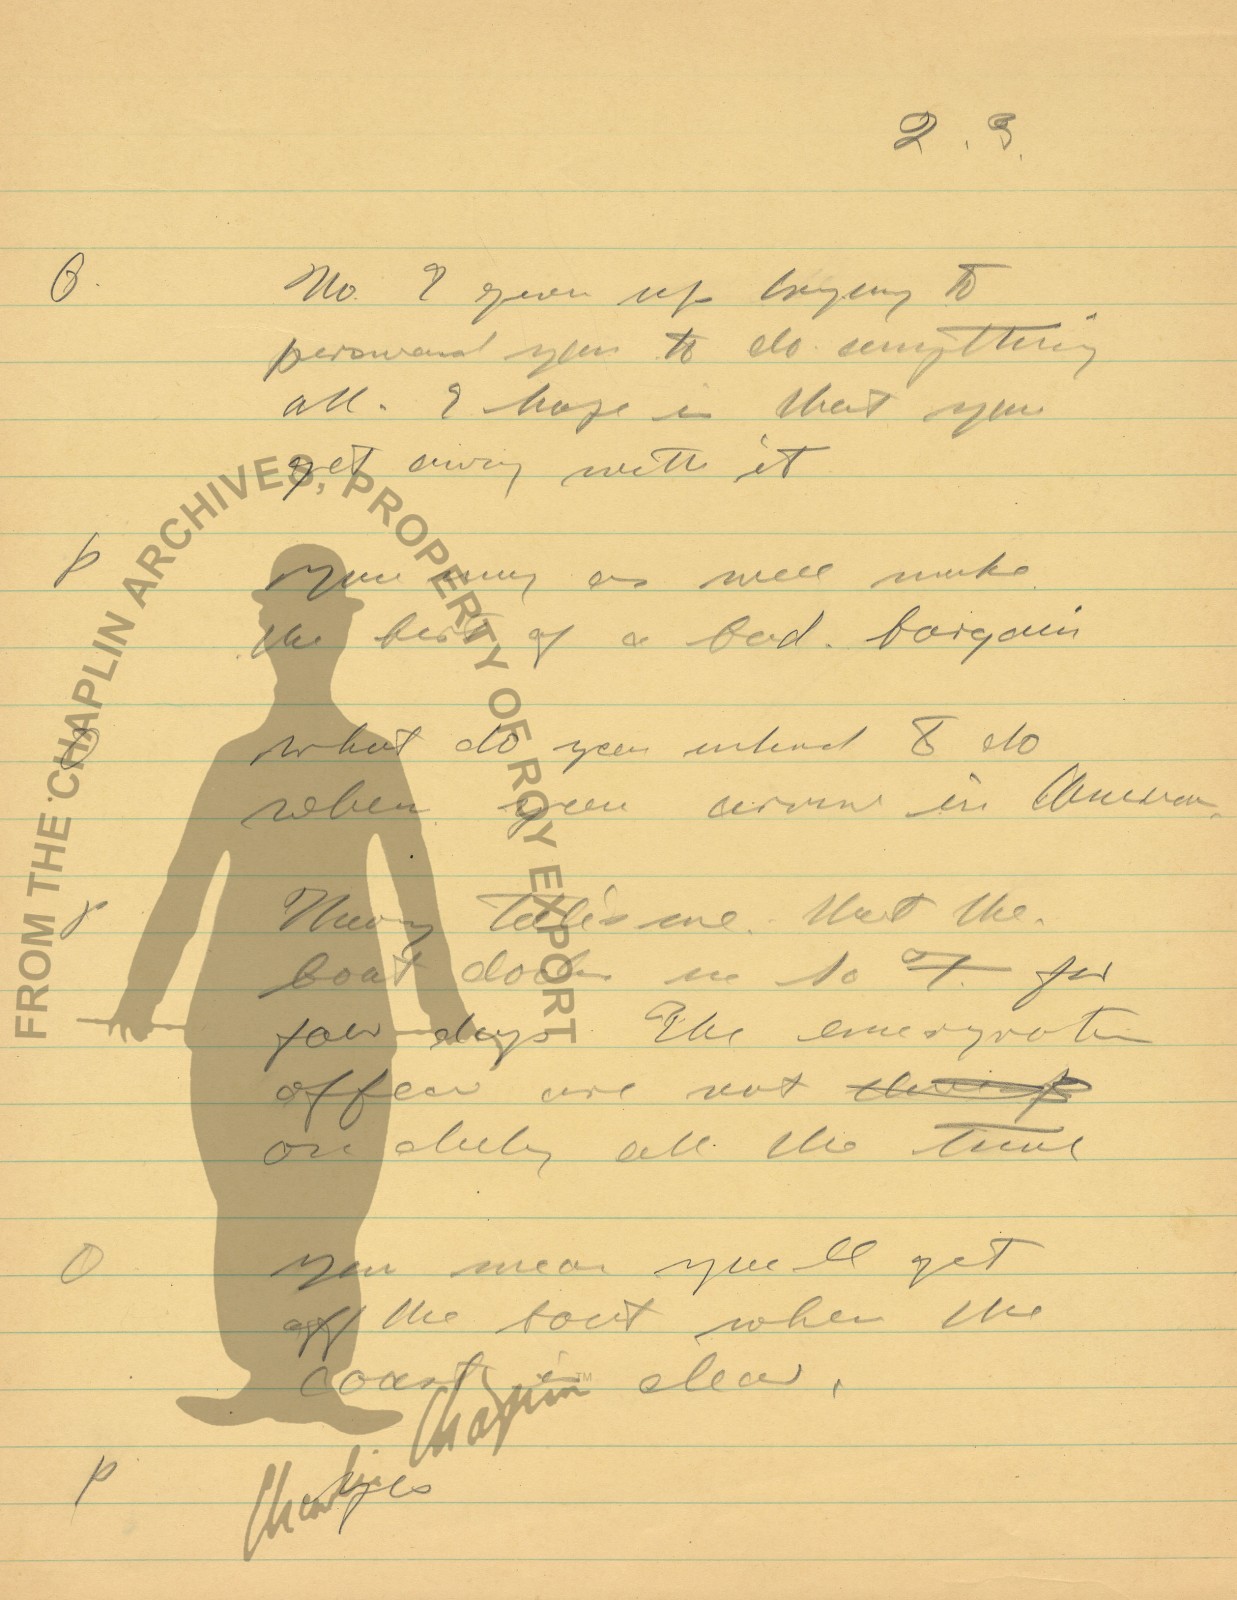 2.3.
O. No. I given up trying to
persuand you to do anything
all. I hope is that you
get away with it
P you may as well make
the best of a bad. bargain
O what do you intend to do
when you arrive in America.
P tells me. that the
boat docks in to for
few days. The
offcer are not
on duty all the time
O you mean you'll get
off the boat when the
coast is clear.
P yes
FROM THE CHAPLIN ARCHIVES, PROPERTY OF ROY EXPORT
Charlie Chaplin™